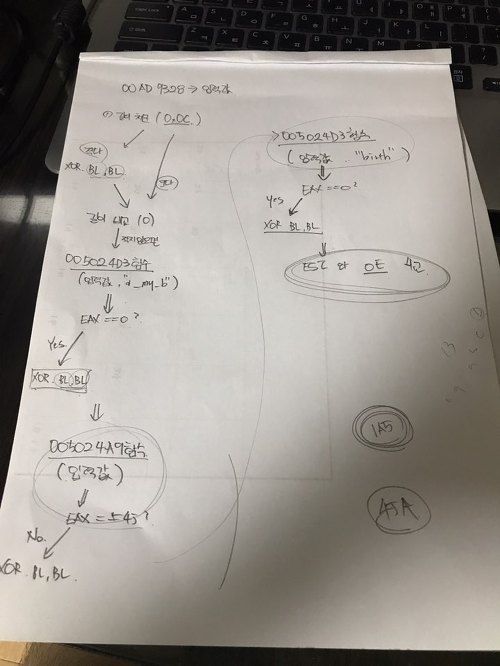 00AD9328 → 입력값
① 길이 체크 (0,0C)
같다
XOR BL,BL
길이 비교 (0)
같지않으면
005024D3 함수
(입력값, "d_my_b")
EAX==0?
Yes
XOR BL,BL
005024A9 함수
(입력값)
No.
XOR BL,BL
005024D3 함수
(입력값, "birth")
EAX==0?
Yes
XOR BL,BL
0E
1A5